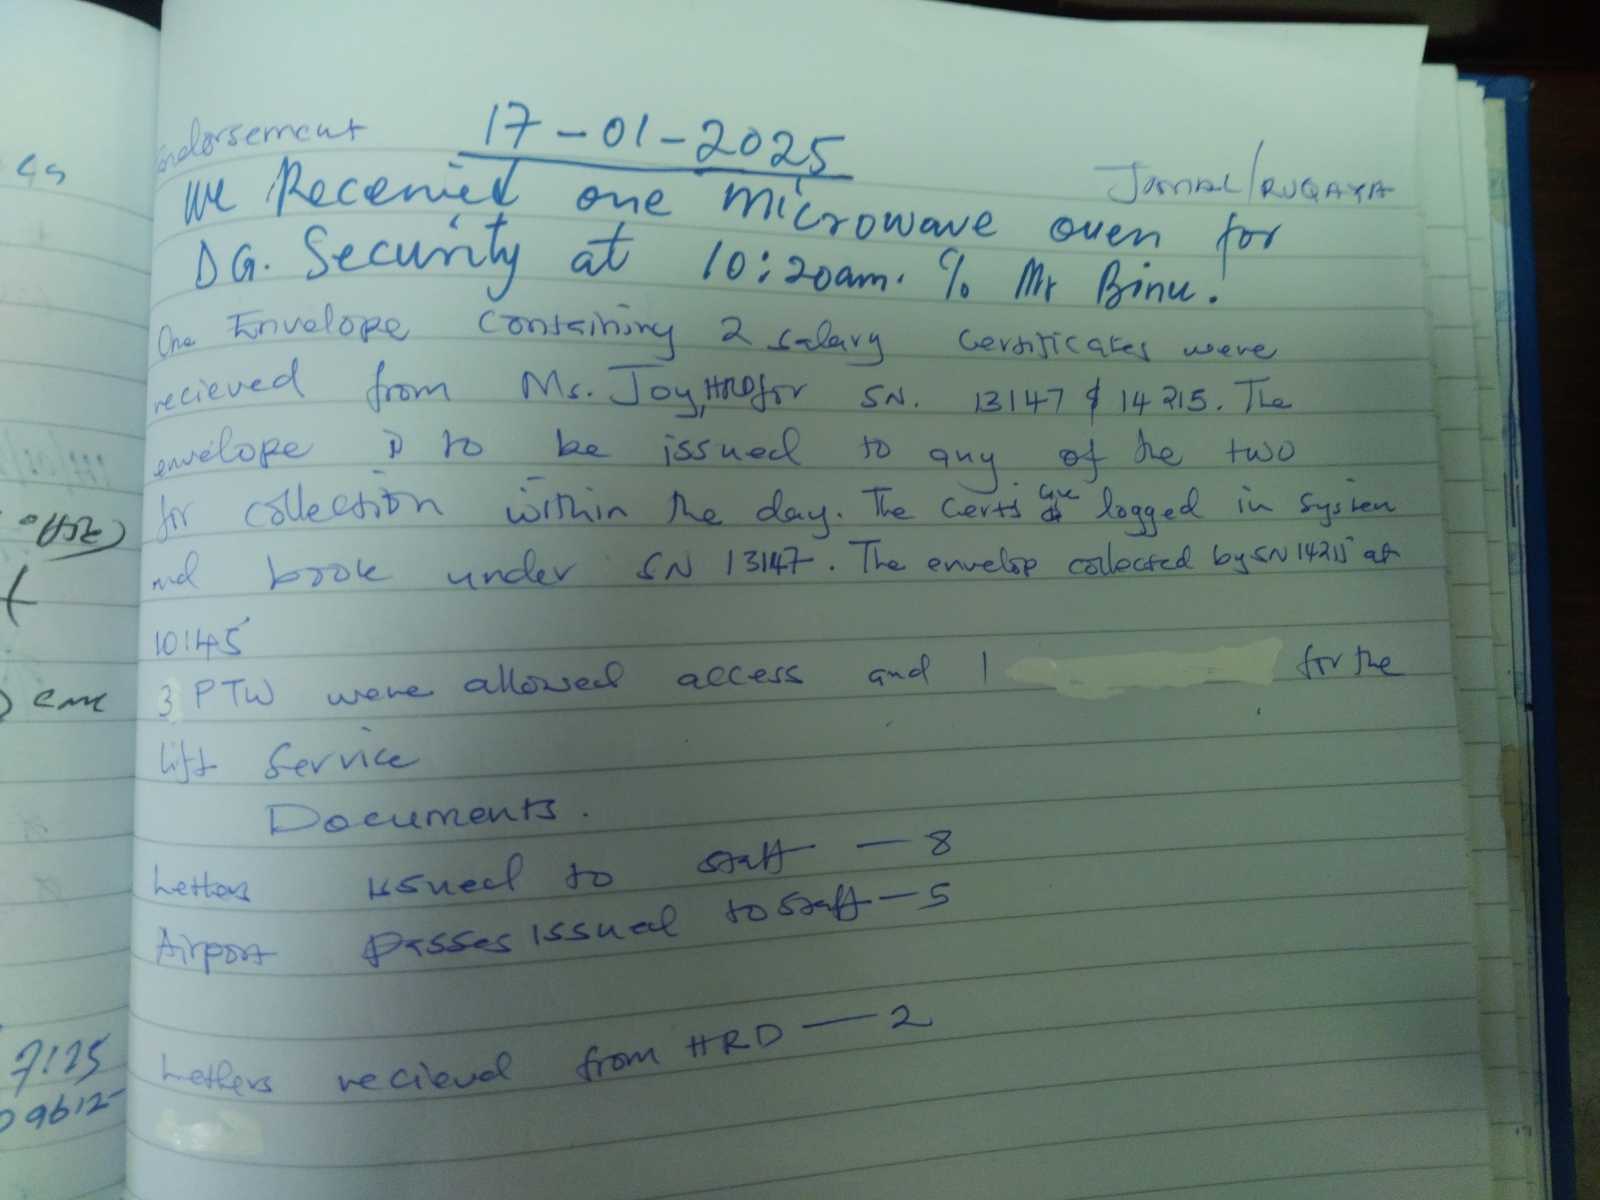 Endorsement 17-01-2025
Jamal/RUQAYA
We Received one microwave oven for
DG. Security at 10:20am. % Mr Binu.
One Envelope containing 2 salary certificates were
recieved from Ms. Joy, HRD for SN. 13147 & 14215. The
envelope is to be issued to any of the two
for collection within the day. The certs are logged in system
and book under SN 13147. The envelop collected by SN 14215 at
10:45
3 PTW were allowed access and 1 for the
lift service
Documents.
Letters issued to staff — 8
Airport passes issued to staff — 5
Letters recieved from HRD — 2
7125
9612